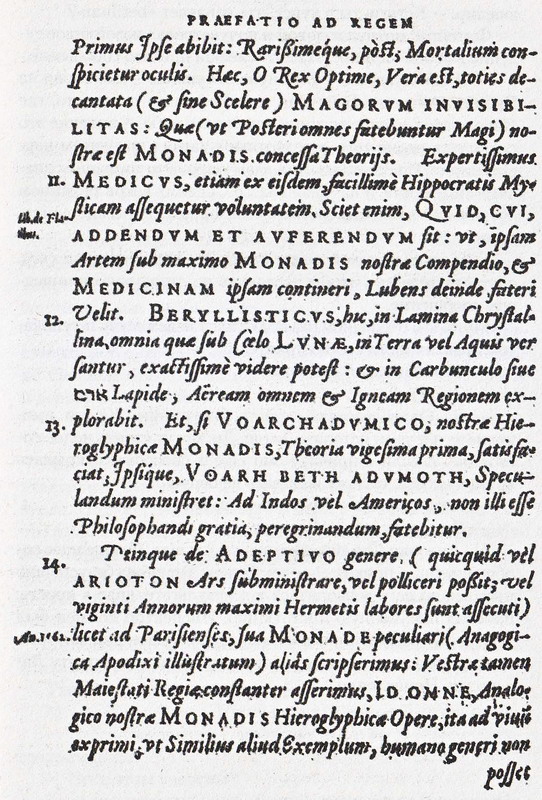 PRAEFATIO AD REGEM
Primus Ipse abibit: Rarißimeque, pòst, Mortalium con-
spicietur oculis. Haec, O Rex Optime, Vera est, toties de-
cantata (& sine Scelere) MAGORVM INVISIBI-
LITAS: Quae (vt Posteri omnes fatebuntur Magi) no-
strae est MONADIS concessa Theorijs. Expertissimus
11. MEDICVS, etiam ex eisdem, facillimè Hippocratis My-
sticam assequetur voluntatem. Sciet enim, QVID, CVI,
Lib. de Fla-
tibus.
ADDENDVM ET AVFERENDVM sit: vt, ipsam
Artem sub maximo MONADIS nostrae Compendio, &
MEDICINAM ipsam contineri, Lubens deinde fateri
12. Velit. BERYLLISTICVS, hic, in Lamina Chrystal-
lina, omnia quae sub Coelo LVNAE, in Terra vel Aquis ver
santur, exactissimè videre potest: & in Carbunculo siue
Lapide, Aëream omnem & Igneam Regionem ex-
13. plorabit. Et, si VOARCHADVMICO, nostrae Hie-
roglyphicae MONADIS, Theoria vigesima prima, satisfa-
ciat, Ipsique, VOARH BETH ADVMOTH, Specu-
landum ministret: Ad Indos vel Americos, non illi esse
Philosophandi gratia, peregrinandum, fatebitur.
14. Deinque de ADEPTIVO genere, (quicquid vèl
ARIOTON Ars subministrare, vel polliceri poßit; vel
viginti Annorum maximi Hermetis labores sunt assecuti)
An. 1562. licet ad Parisienses, sua MONADE peculiari (Anagogi-
ca Apodixi illustratum) aliàs scripserimus: Vestrae tamen
Maiestati Regiae constanter asserimus, ID OMNE, Analo-
gico nostrae MONADIS Hieroglyphicae Opere, ita ad viuū
exprimi, vt Similius aliud Exemplum, humano generi non
posset